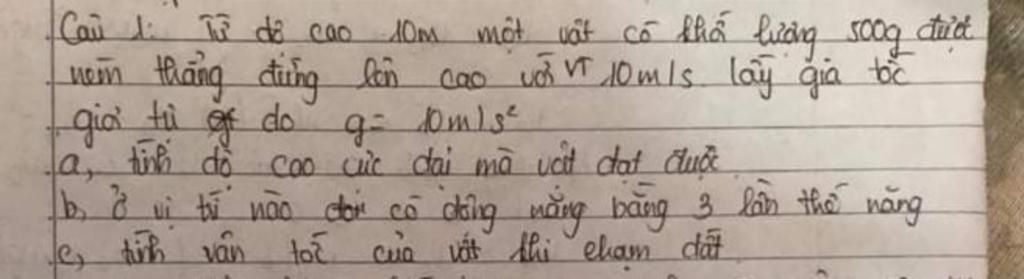 Câu 1: Từ độ cao 10m một vật có khố lượng 500g được
ném thẳng đứng lên cao với VT 10m/s lấy gia tốc
giơi tử do g= 10m/s²
a, tính độ cao cực đại mà vật đạt được
b, ở vị trí nào có động năng bằng 3 lần thế năng
c, tính vân tốc của vật khi chạm đất